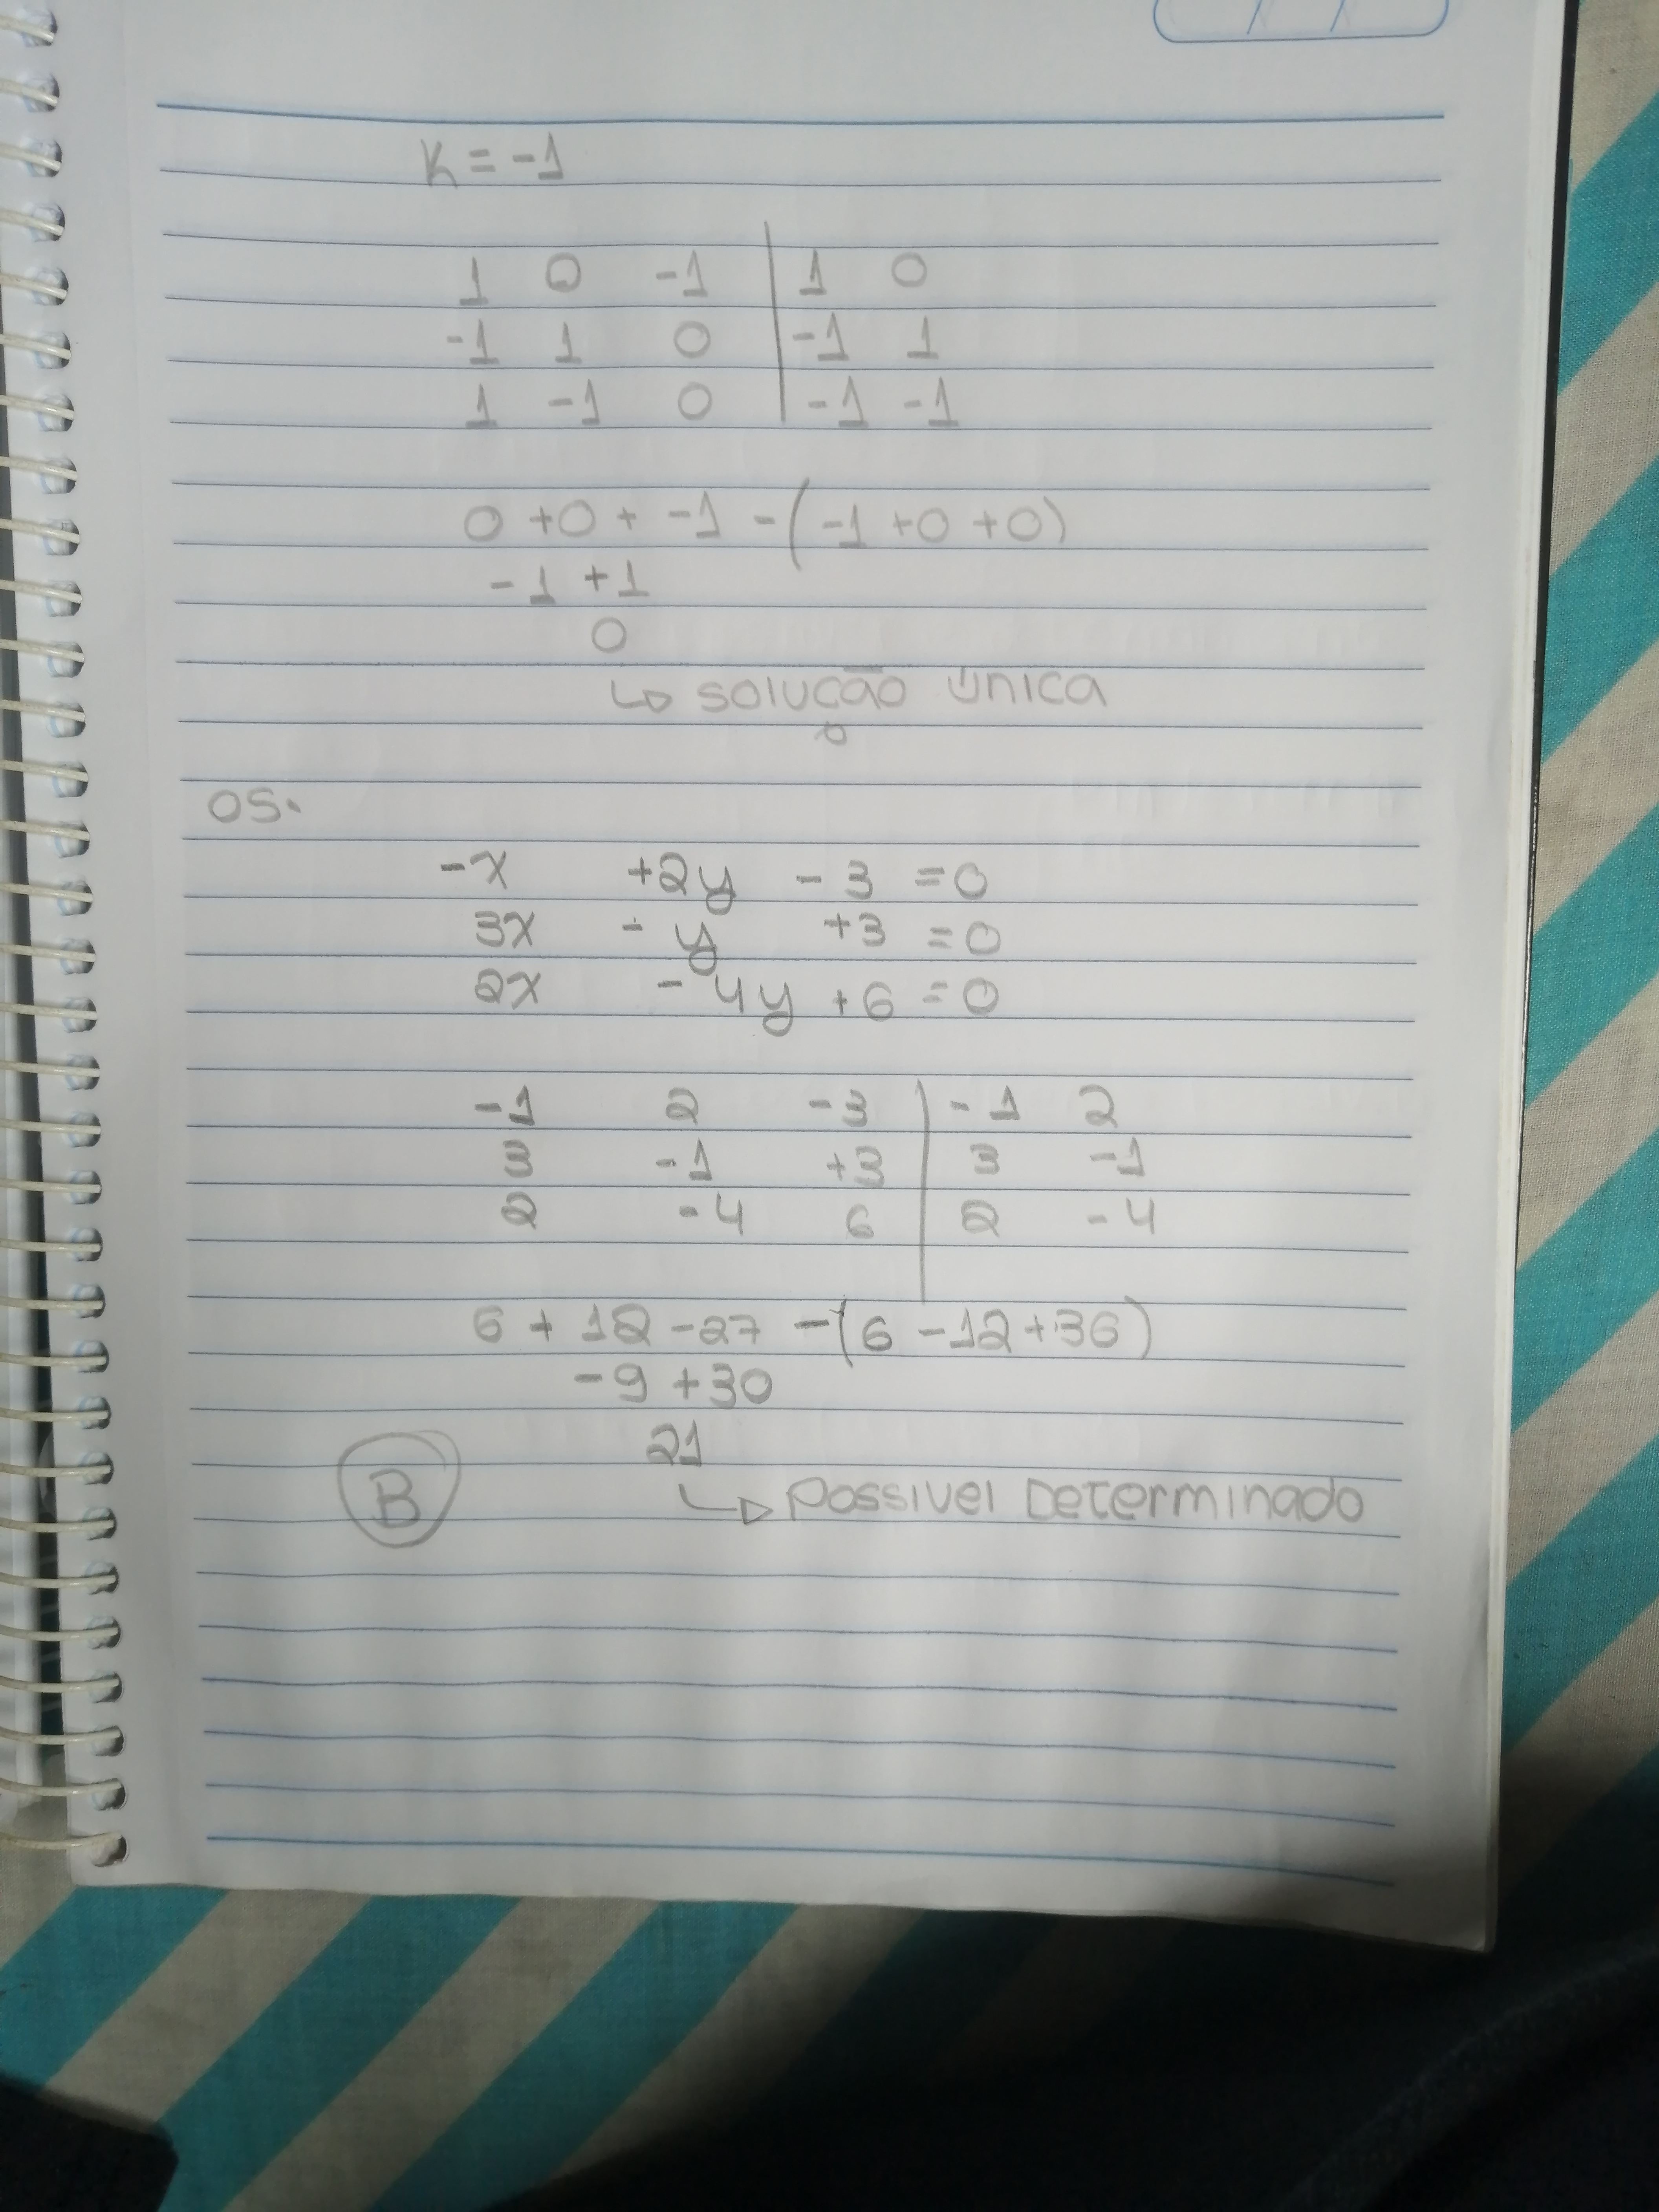 K = -1
1 0 -1 | 1 0
-1 1 0 | -1 1
1 -1 0 | -1 -1
0 + 0 + -1 - (-1 + 0 + 0)
-1 + 1
0
↳ solução única
05.
-x +2y - 3 = 0
3x - y +3 = 0
2x - 4y + 6 = 0
-1 2 -3 | -1 2
3 -1 +3 | 3 -1
2 -4 6 | 2 -4
6 + 12 - 27 - (6 - 12 + 36)
-9 + 30
21
B ↳ Possivel Determinado